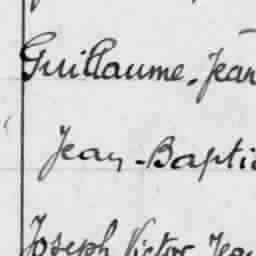 Guillaume, Jean
Jean-Baptis
Joseph Victor Jea